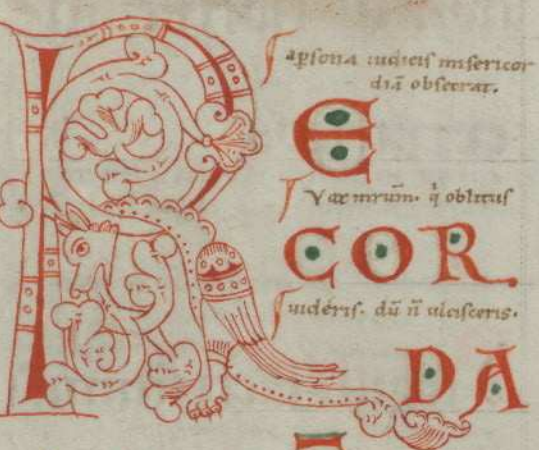 R
aꝑsona iudicis misericor
diā obsecrat.
E
oblitus
COR
uideris. dū n̄ ulcisceris.
DA